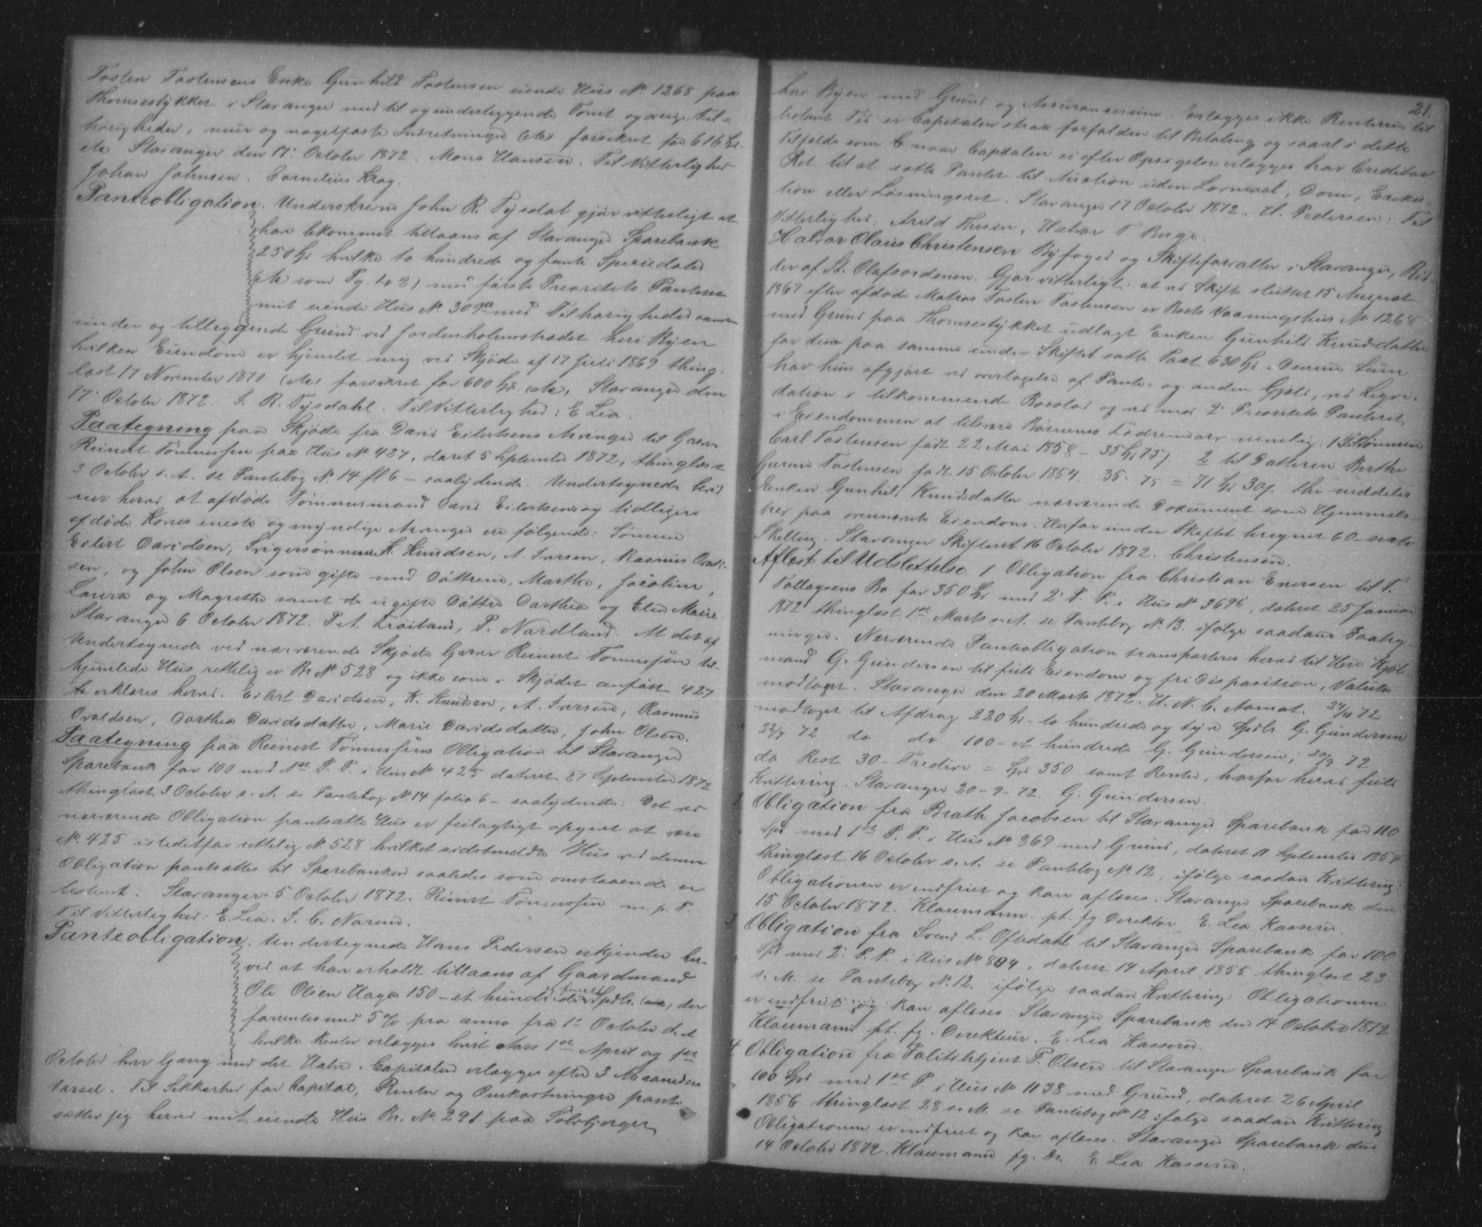 Tosten Tostensens Enke Gunhild Tostensen eiende Huus No 1268 paa
Thomsestykket i Stavanger med til og underliggende Tomt og øvrige Til-
hørigheder, muur og nagelfaste Indretninger etc forsikret for 616 Spd.
etc Stavanger den 17 October 1872. Mons Hansen. Til Vitterlighed
Johan Johnsen. Cornelius Krag.
Panteobligation. Underskrevne John R. Tysdal gjør vitterligt at
have bekommet tillaans af Stavanger Sparebank
250 Spd hvilke to hundrede og femti Speciedaler
(etc som Pg 1 & 2) med første Prioritets Panteret
mit eiende Huus No 309 med Tilhørigheder samt
under og tilliggende Grund ved Jordenholmstrædet heri Byen
hvilken Eiendom er hjemlet mig ved Skjøde af 17 Juli 1869 thing-
læst 17 November 1870 (etc) forsikret for 600 Spd. etc, Stavanger den
17 October 1872. J. R. Tysdahl. Til Vitterlighed: E Lea
Paategning paa Skjøde fra David Eilertsens Arvinger til Garver
Reinert Tønnessen paa Huus No 427, datert 5 September 1872, thinglæst
3 October s. A. se Pantebog No 14 fl 6 – saalydende. Undertegnede bevid-
ner herved at afdøde Tømmermand David Eilertsen og tidligere
afdøde Kones eneste og myndige Arvinger ere følgende: Sønnen
Eilert Davidsen, Svigersønnerne K. Knudsen, A. Iversen, Rasmus Evald-
sen, og John Olsen som gifte med Døttrene, Marthe, Jacobine,
Laura og Magrethe samt de ugifte Døttre Dorthea og Elen Marie
Stavanger 6 October 1872. P. A. Lioiland, P. Nordland. At det af
Undertegnede ved nærværende Skjøde Garver Reinert Tønnessen til-
hjemlede Huus rettelig er Br. No 528 og ikke som i Skjødet anført 427
erklæres herved. Eilert Davidsen, K. Knudsen, A. Iversen, Rasmus
Evaldsen, Dorthea Davidsdatter, Marie Davidsdatter, John Olsen.
Paategning paa Reinert Tønnessens Obligation til Stavanger
Sparebank for 100 med 1ste P. P. i Huus No 425 dateret 27 September 1872
thinglæst 3 October s. A. se Pantebog No 14 folio 6 – saalydende: Det ved
nærværende Obligation pantsatte Huus er feilagtigt opgivet at være
No 425 istedetfor rettelig No 528 hvilket sidstmeldte Huus ved denne
Obligation pantsættes til Sparebanken saaledes som omstaaende er
bestemt. Stavanger 5 October 1872. Reinert Tønnessen m. p. P.
Til Vitterlighed. E. Lea. J. C. Narum.
Panteobligation. Undertegnede Hans Pedersen erkjender her-
ved at have erholdt tillaans af Gaardmand
Ole Olsen Haga 150 – et hundrede femti Spdlr. (etc), der
forrentes med 5 % pro anno fra 1ste October d. A.
hvilke Renter erlægges hvert Aars 1ste April og 1ste
October hver Gang med det Halve. Capitalen erlægges efter 3 Maaneders
Varsel. Til Sikkerhed for Capital, Renter og Omkostninger pant-
sætter jeg herved mit eiende Huus Br. No 291 paa Sølvbjerget
21.
her i Byen med Grund og Assurancesum. Erlægges ikke Renterne til
bestemt Tid er Capitalen straks forfalden til Betaling og saavel i dette
Tilfælde som naar Capitalen ei efter Opsigelse erlægges har Creditor
Ret til at sætte Pantet til Auktion uden Lovmaal, Dom, Exeku-
tion eller Løsningsret. Stavanger 17 October 1872. H. Pedersen: Til
Vitterlighed. Arild Husen, Halvor T Berge.
Halvor Olaus Christensen Byfoged og Skifteforvalter i Stavanger, Rid-
der af St. Olafsordenen. Gjør vitterligt: at ved Skifte sluttet 15 August
1867 efter afdøde Matros Tosten Tostensen er Boets Vaaningshus No 1268
med Grund paa Thomsestykket udlagt Enken Gunhild Knudsdatter
for den paa samme under Skiftet satte Taxt 630 Spd. Denne Sum
har hun afgjort ved overtagelse af Pante- og anden Gjæld, ved Liqvi-
dation i tilkommende Boeslod og ved med 2. Prioritets Panteret
i Eiendommen at tilsvare Børnenes Fædrenearv nemlig: 1 til Sønnen
Carl Tostensen født 22 Mai 1858 – 35 Spd 75 2 til Datteren Berthe
Gurine Tostensen født 15 October 1864. 35 – 75 = 71 Spd 30, thi meddeles
Enken Gunhild Knudsdatter nærværende Dokument som Hjemmels-
brev paa ovennævnte Eiendom. Herfor under Skiftet beregnet 60 – sexti
Skilling. Stavanger Skifteret 16 October 1872. Christensen.
Aflæst til Udslettelse 1 Obligation fra Christian Enersen til T.
Tollagsens Bo for 350 Spd med 2. P. P. i Huus No 369, dateret 25 Januar
1872 thinglæst 1ste Marts s. A. se Pantebog No 13. ifølge saadan Paateg-
ninger. Nærværende Panteobligation transporteres herved til Herr Kjøb-
mand G. Gundersen til fuld Eiendom og fri Disposition, Valuta
modtaget. Stavanger den 20 Marts 1872. H. N. C. Aamot. 24/4 72
modtaget til Afdrag 220 Spd – to hundrede og tyve Spdlr. G. Gundersen
22/7 72 do do 100 – et hundrede G. Gundersen, 20/9 72
do Rest 30 – Tredive = Spd 350 samt Renter, hvorfor herved fuld
Kvittering. Stavanger 20 – 9 – 72. G. Gundersen.
2 Obligation fra Brath Jacobsen til Stavanger Sparebank for 110
Spd med 1ste P. P. i Huus No 869 med Grund, dateret 11 September 1867
thinglæst 16 October s. A. se Pantebog No 12, ifølge saadan Kvittering:
Obligationen er indfriet og kan aflæses. Stavanger Sparebank den
15 October 1872. Klaumann pt. fg Direktør E. Lea Kasserer.
3 Obligation fra Svend L. Oftedahl til Stavanger Sparebank for 100
Spd med 2. P. P. i Huus No 804, dateret 14 April 1855 thinglæst 23
s. M. se Pantebog No. 12. ifølge saadan Kvittering: Obligationen
er indfriet og kan aflæses. Stavanger Sparebank den 14 October 1872
Klaumann pt. fg. Direktør. E. Lea Kasserer.
4 Obligation fra Politibetjent P. Olsen til Stavanger Sparebank for
100 Spd med 1ste P i Huus No 1138 med Grund, dateret 26 April
1856 thinglæst 28 s. M. se Pantebog No 12 ifølge saadan Kvittering
Obligationen er indfriet og kan aflæses. Stavanger Sparebank den
14 October 1872. Klaumann fg. Dr. E Lea Kasserer.